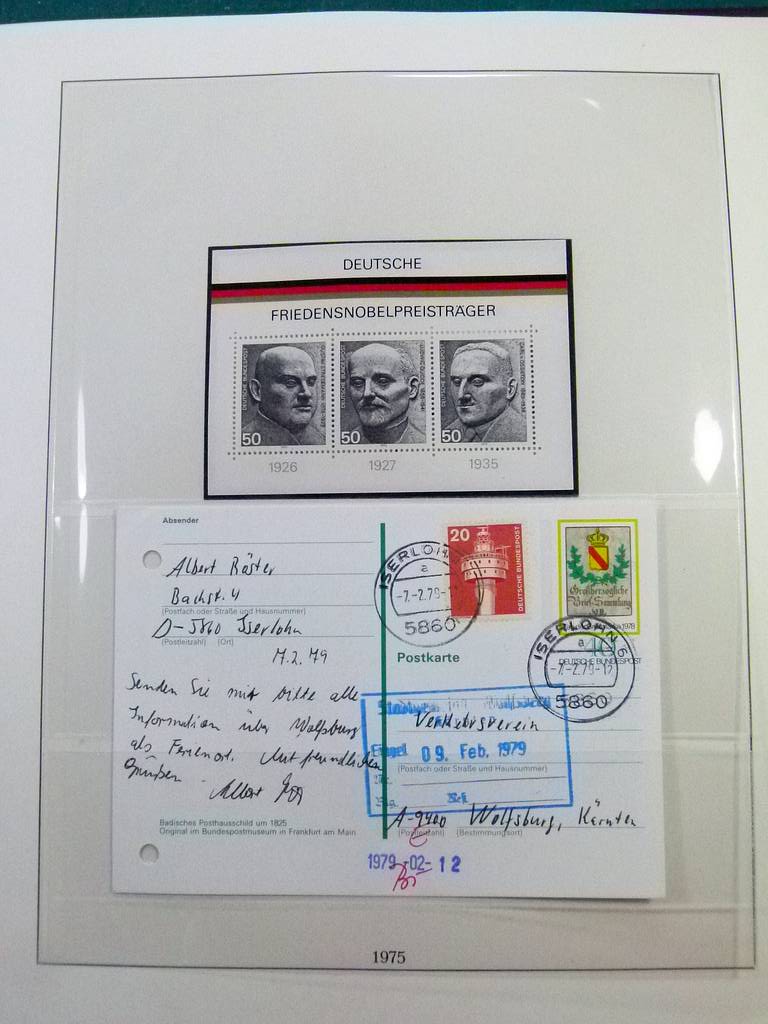 DEUTSCHE
FRIEDENSNOBELPREISTRÄGER
DEUTSCHE BUNDESPOST
50
DEUTSCHE BUNDESPOST
50
DEUTSCHE BUNDESPOST
50
1926
1927
1935
Absender
Albert Röster
Bachst. 4
(Postfach oder Straße und Hausnummer)
D-5860 Iserlohn
(Postleitzahl) (Ort)
7.2.79
Senden Sie mir bitte alle
Information über Wolfsburg
als Ferienort. Mit freundlichen
Grüßen
Albert
Badisches Posthausschild um 1825
Original im Bundespostmuseum in Frankfurt am Main
20
DEUTSCHE BUNDESPOST
ISERLOHN
a
-7.-2.79-
5860
Großherzogliche
Brief-Sammlung
DEUTSCHE BUNDESPOST
ISERLOHN 6
a
-7.-2.79-
5860
Postkarte
Verkehrsverein
Eingel
09. Feb. 1979
(Postfach oder Straße und Hausnummer)
A-9400 Wolfsburg, Kärnten
(Postleitzahl) (Bestimmungsort)
1979-02-12
1975